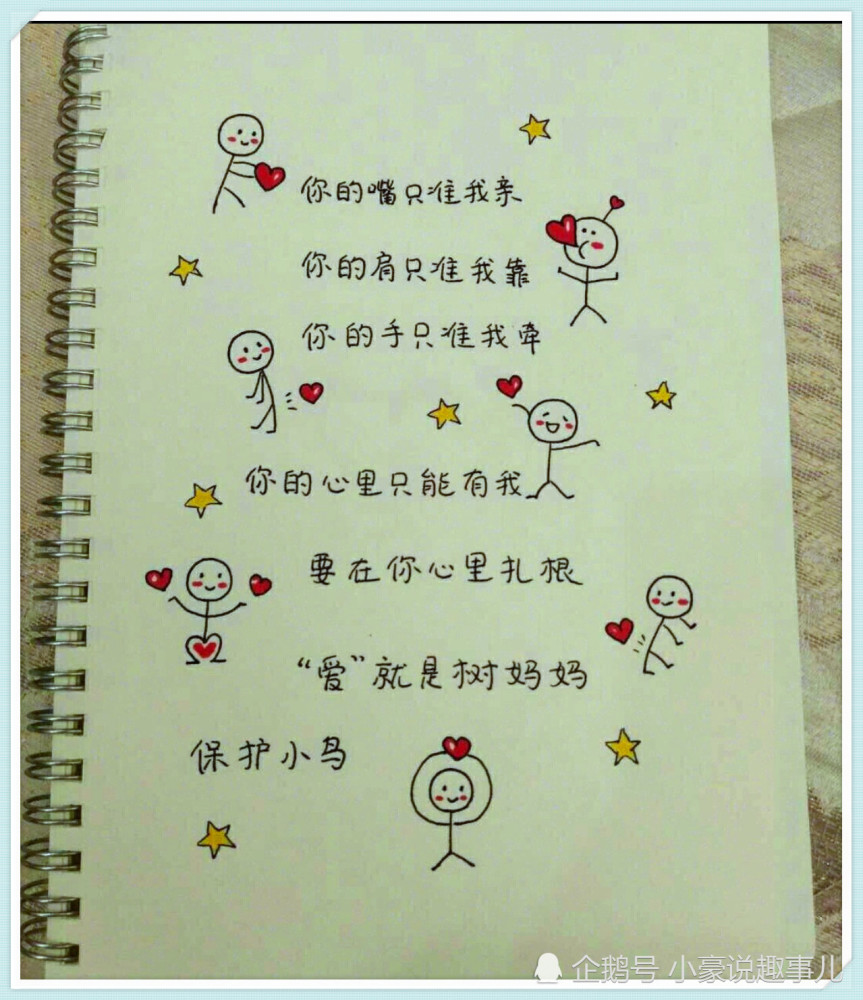 你的嘴只准我亲
你的肩只准我靠
你的手只准我牵
你的心里只能有我
要在你心里扎根
“爱”就是树妈妈
保护小鸟
企鹅号 小豪说趣事儿